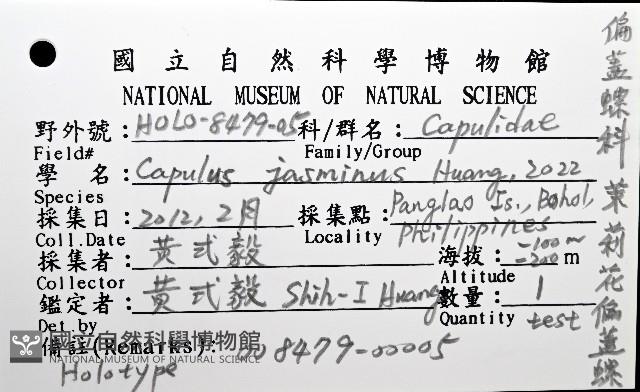 國立自然科學博物館
NATIONAL MUSEUM OF NATURAL SCIENCE
野外號：HOLO-8479-05 科/群名：Capulidae
Field# Family/Group
學 名：Capulus jasminus Huang, 2022
Species
採集日：2012, 2月 採集點：Panglao Is., Bohol,
Coll.Date Locality Philippines
採集者：黄式毅 海拔：-100~-200 m
Collector Altitude
鑑定者：黄式毅 Shih-I Huang 數量：1
Det.by Quantity test
備註(Remarks): 8479-00005
Holotype
偏蓋螺科 茉莉花偏蓋螺
國立自然科學博物館
NATIONAL MUSEUM OF NATURAL SCIENCE